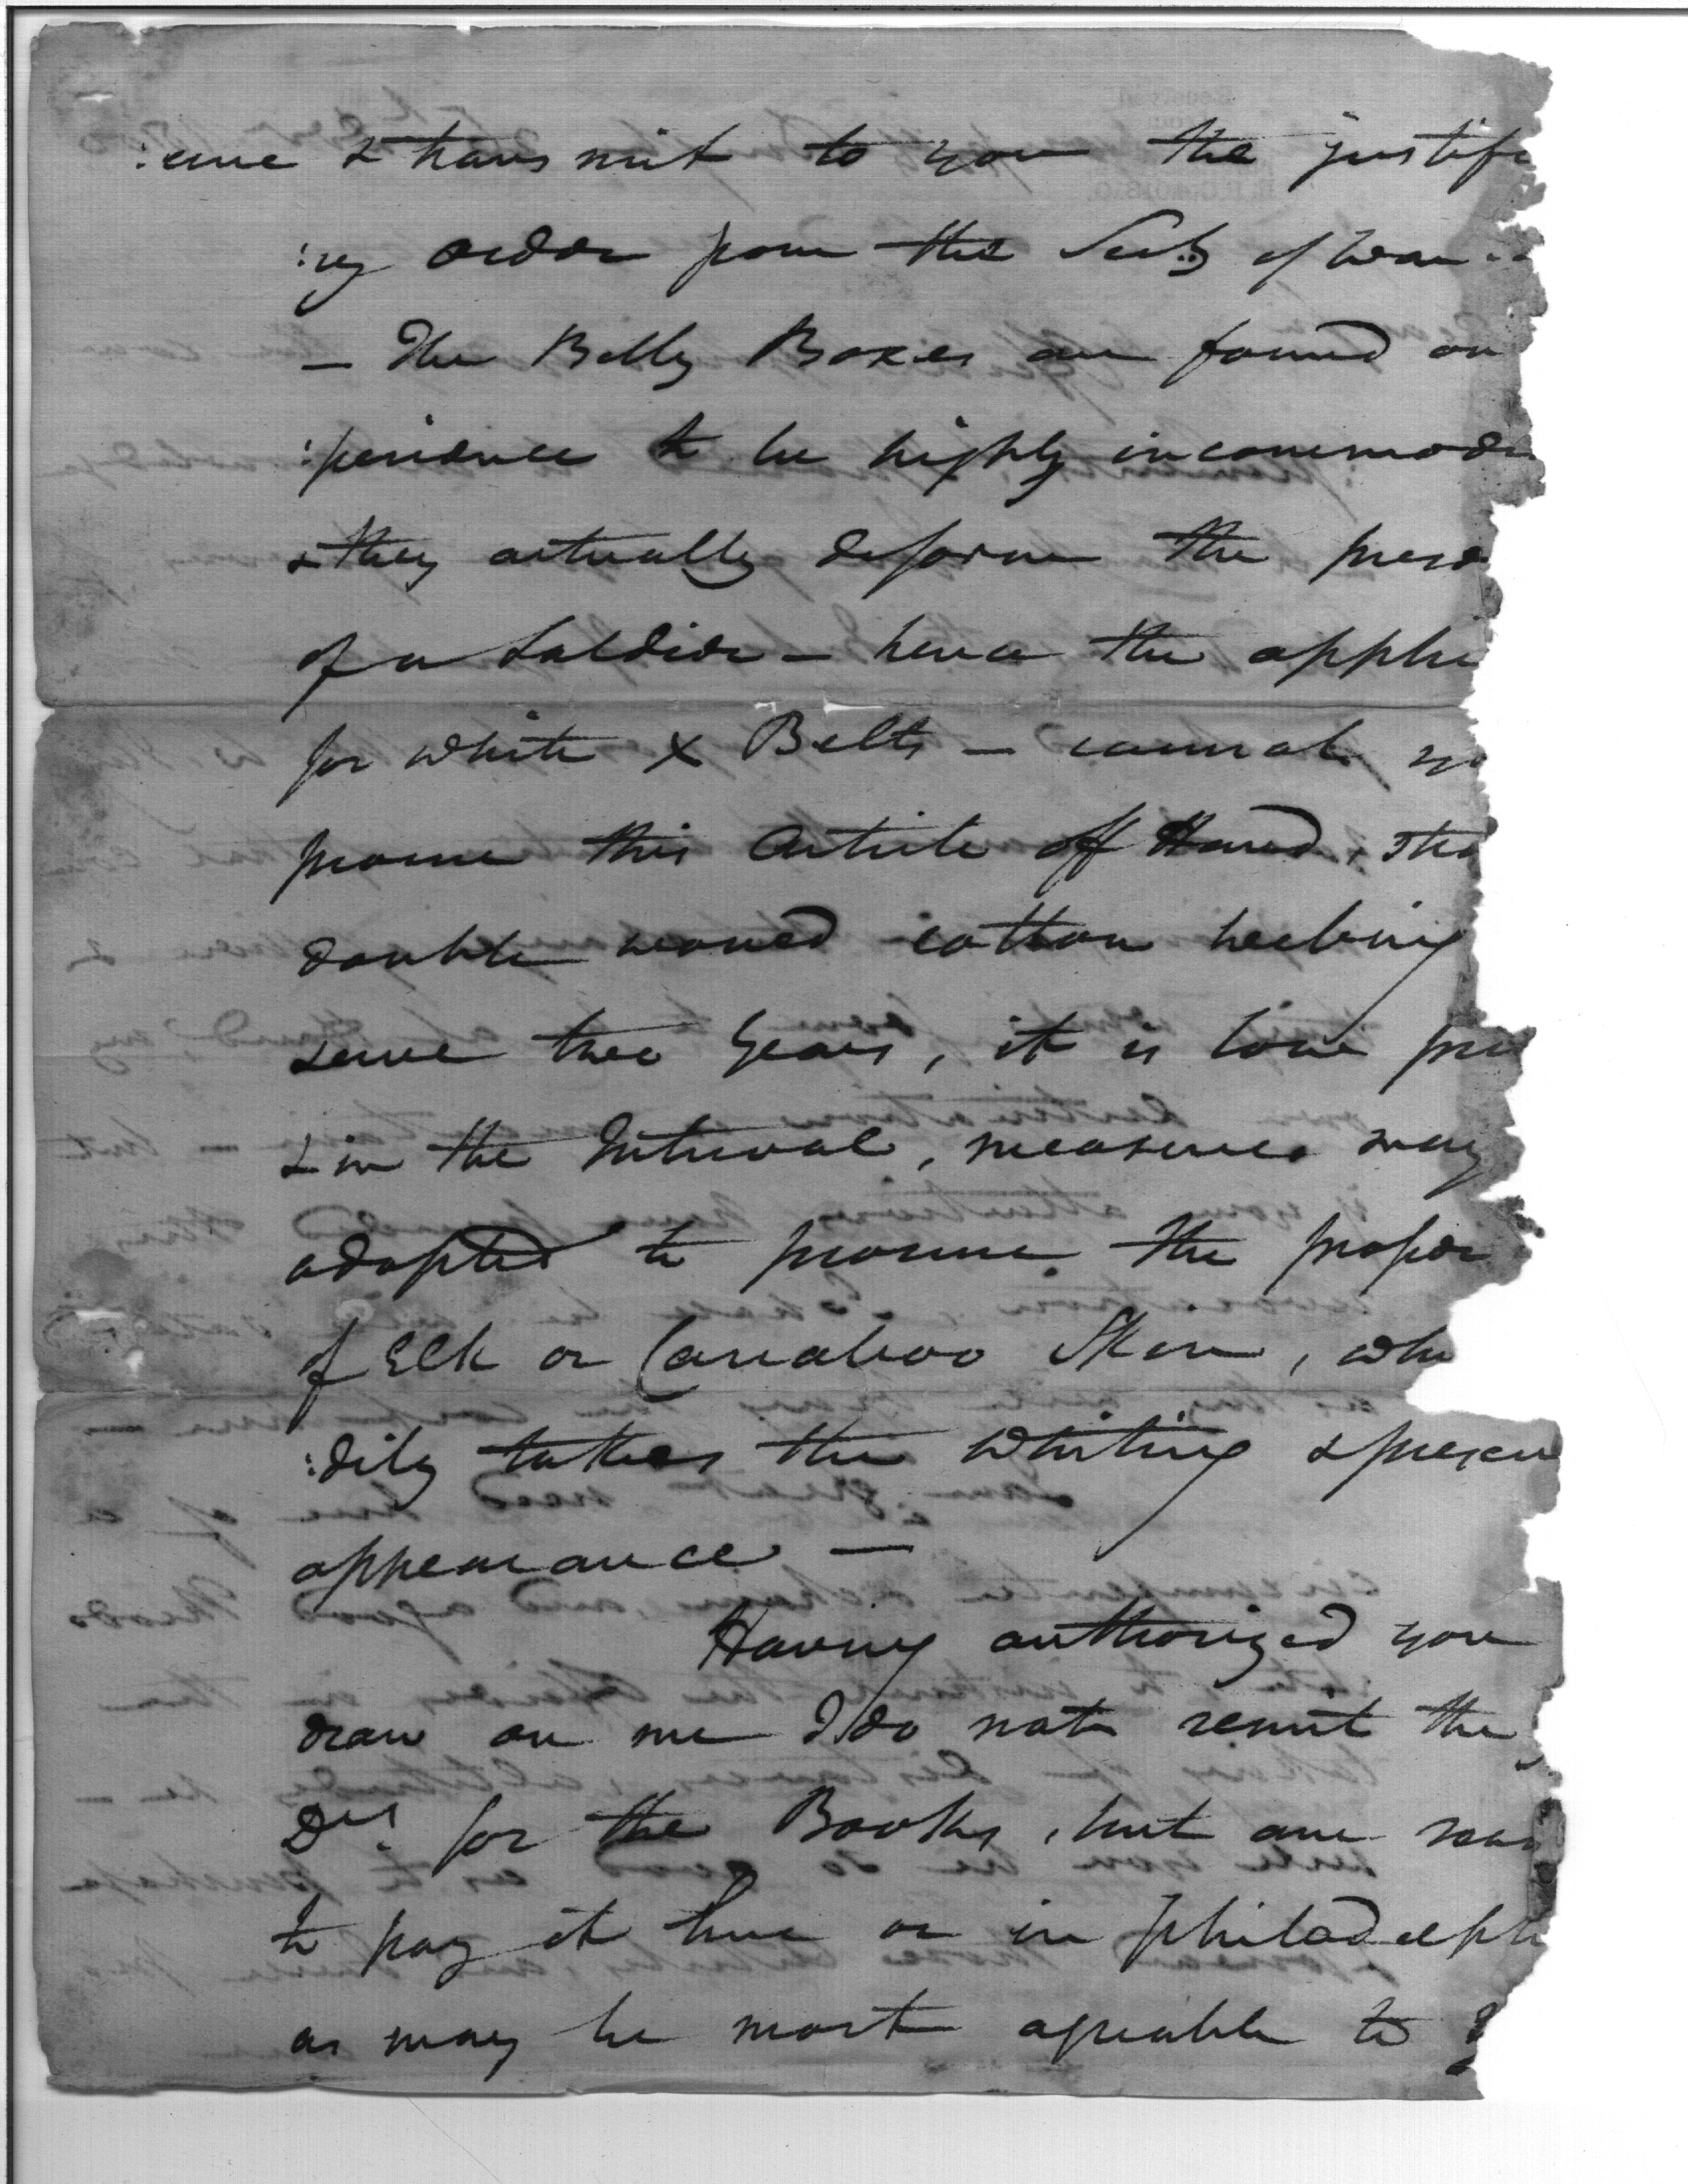 :cure & transmit to you the justify
:ing order from the Secty. of War
— The Belly Boxes are found on
:perience to be highly incommod
& they actually deform the pers
of a Soldier — hence the appli
for white X Belts — cannot yo
procure this Article off Hand, the
double woved cotton
serve two Years, it is low pri
& in the Interval, measures may
adopted to procure the proper
of Elk or Carraboo Skin, whi
:dily takes the whiting & preser
appearance —
Having authorized you
draw on me I do not remit the
Drs. for the Books, but am
to pay it here or in philadelph
as may be most agreable to y